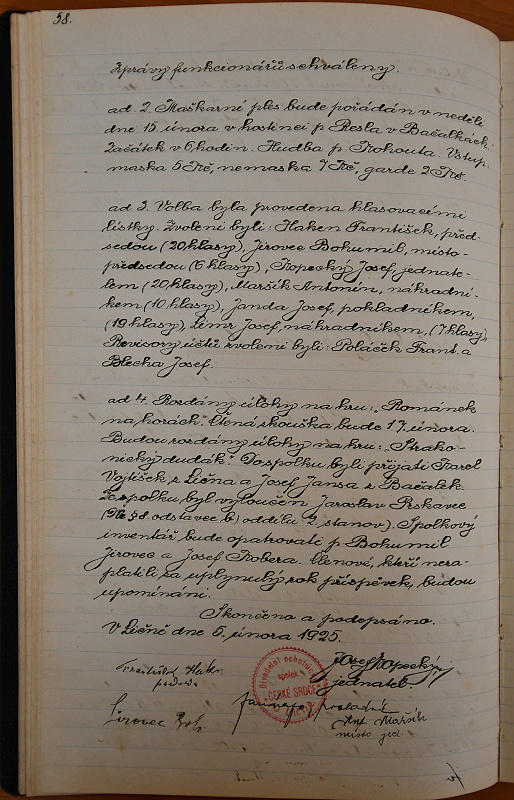 58.
Zprávy funkcionářů schváleny.
ad. 2. Maškarní ples bude pořádán v neděli
dne 15. února v hostinci p. Resla v Bačalkách.
Začátek v 6 hodin. Hudba p. Kohouta. Vstup
maska 5 Kč, nemaska 7 Kč, garde 2 Kč.
ad 3. Volba byla provedena hlasovacími
lístky. Zvoleni byli: Haken František, před-
sedou (20 hlasy), Jirovec Bohumil, místo-
předsedou (6 hlasy), Kopecký Josef, jednate-
lem (20 hlasy), Maršík Antonín, náhradní-
kem (10 hlasy), Janda Josef, pokladníkem,
(19 hlasy) Josef, náhradníkem, (7 hlasy)
Revisory účtů zvoleni byli: Poláček Frant. a
Blecha Josef.
ad 4. Rozdány úlohy na hru: „Románek
na horách". Čtená zkouška bude 17. února.
Budou rozdány úlohy na hru: „Strako-
nický dudák". Do spolku byli přijati Karel
Vojtíšek z Lična a Josef Jansa z Bačalek.
Ze spolku byl vyloučen Jaroslav Prskavec
(Dle § 8. odstavec b) oddílu 2. stanov). Spolkový
inventář bude opatrovati p. Bohumil
Jirovec a Josef Kobera. Členové, kteří neza-
platili za uplynulý rok příspěvek, budou
upomínáni.
Skončeno a podepsáno.
V Ličně dne 5. února 1925.
František Haken
Josef Kopecký
jednatel.
Divadelní ochotnický
spolek
"ČESKÉ SRDCE"
Jirovec Boh.
pokladní
Ant. Maršík
místo jed.